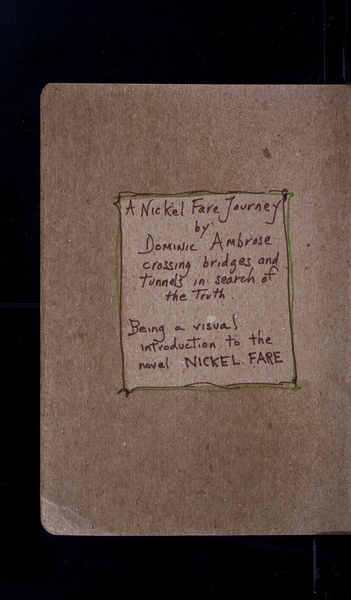 A Nickel Fare Journey
by
Dominic Ambrose
crossing bridges and
tunnels in search of
the Truth
Being a visual
introduction to the
novel NICKEL FARE